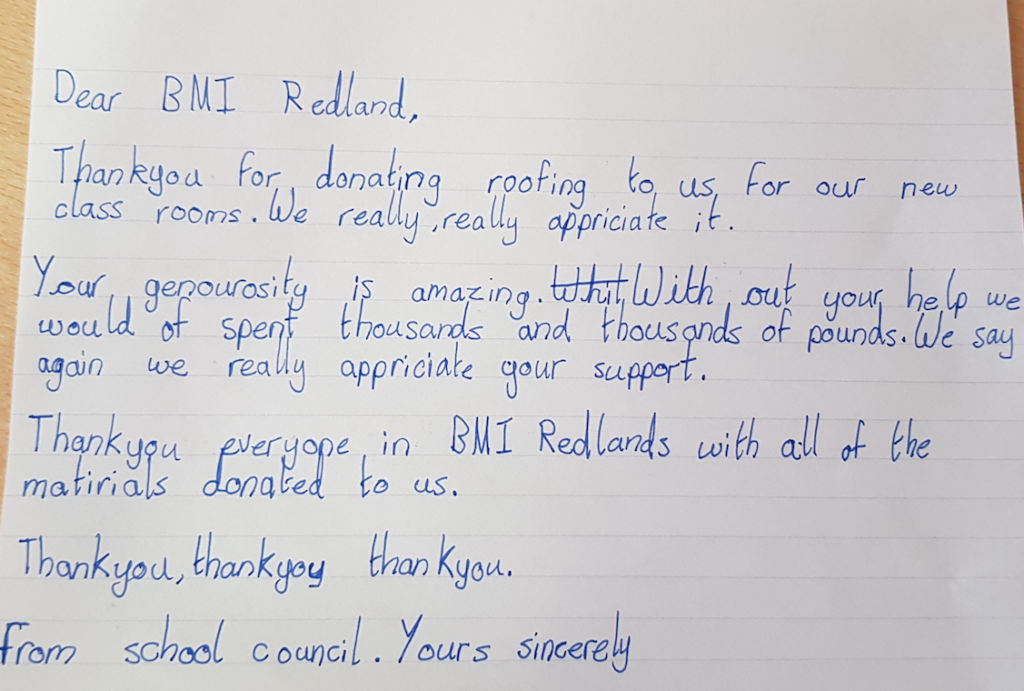 Dear BMI Redland,
Thankyou for donating roofing to us for our new
class rooms. We really, really appriciate it.
Your genourosity is amazing. Whit With out your help we
would of spent thousands and thousands of pounds. We say
again we really appriciate your support.
Thankyou everyone in BMI Redlands with all of the
matirials donated to us.
Thankyou, thankyou thankyou.
From school council. Yours sincerely